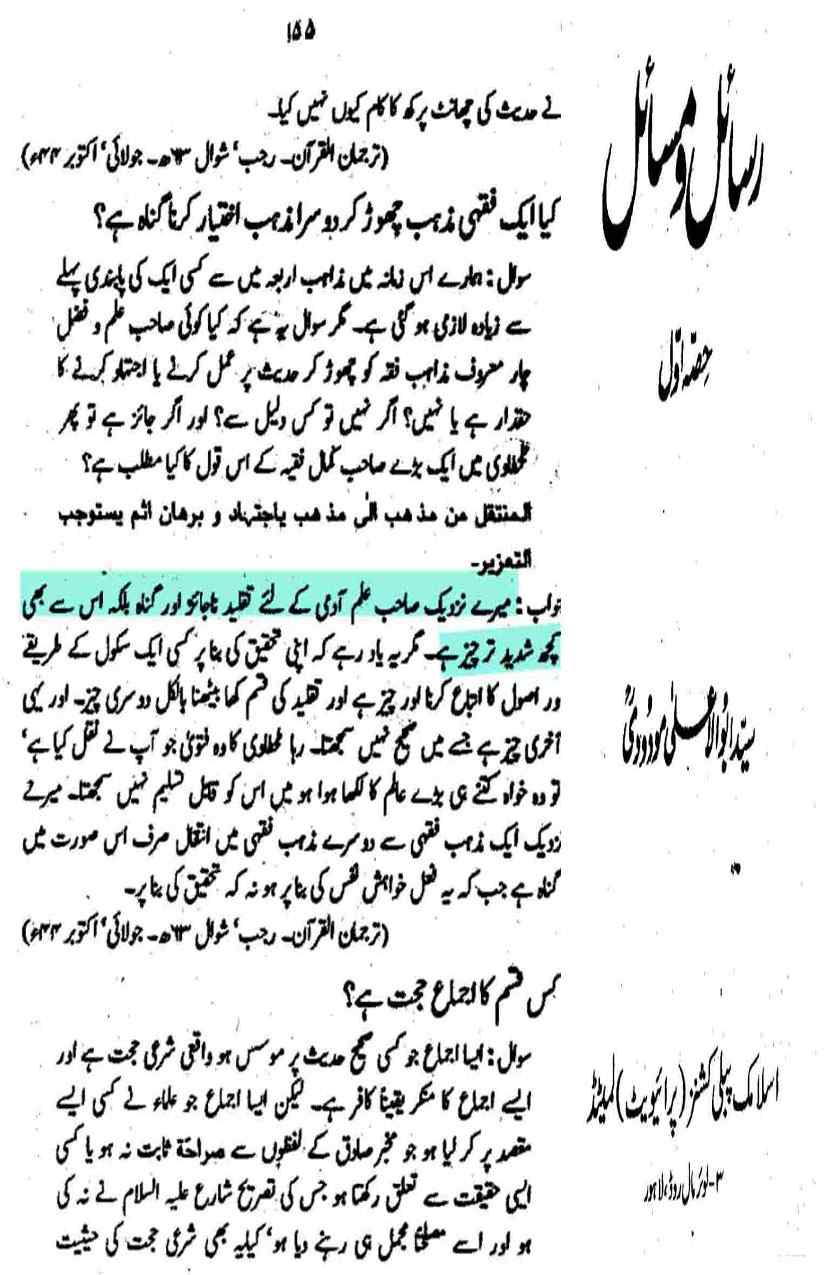 ۱۵۵
نے حدیث کی چھانٹ پرکھ کا کام کیوں نہیں کیا۔
(ترجمان القرآن۔ رجب، شوال ۶۳ھ۔ جولائی، اکتوبر ۴۴ء)
کیا ایک فقہی مذہب چھوڑ کر دوسرا مذہب اختیار کرنا گناہ ہے؟
سوال : ہمارے اس زمانہ میں مذاہب اربعہ میں سے کسی ایک کی پابندی پہلے
سے زیادہ لازمی ہو گئی ہے۔ مگر سوال یہ ہے کہ کیا کوئی صاحب علم و فضل
چار معروف مذاہب فقہ کو چھوڑ کر حدیث پر عمل کرنے یا اجتہاد کرنے کا
حقدار ہے یا نہیں؟ اگر نہیں تو کس دلیل سے؟ اور اگر جائز ہے تو پھر
طحطاوی میں ایک بڑے صاحب کمال فقیہ کے اس قول کا کیا مطلب ہے؟
المنتقل من مذهب الی مذهب باجتهاد و برهان اثم یستوجب
التعزیر۔
جواب : میرے نزدیک صاحب علم آدمی کے لئے تقلید ناجائز اور گناہ بلکہ اس سے بھی
کچھ شدید تر چیز ہے۔ مگر یہ یاد رہے کہ اپنی تحقیق کی بنا پر کسی ایک سکول کے طریقے
ور اصول کا اتباع کرنا اور چیز ہے اور تقلید کی قسم کھا بیٹھنا بالکل دوسری چیز۔ اور یہی
آخری چیز ہے جسے میں صحیح نہیں سمجھتا۔ رہا طحطاوی کا وہ فتویٰ جو آپ نے نقل کیا ہے،
تو وہ خواہ کتنے ہی بڑے عالم کا لکھا ہوا ہو میں اس کو قابل تسلیم نہیں سمجھتا۔ میرے
نزدیک ایک مذہب فقہی سے دوسرے مذہب فقہی میں انتقال صرف اس صورت میں
گناہ ہے جب کہ یہ فعل خواہش نفس کی بنا پر ہو نہ کہ تحقیق کی بنا پر۔
(ترجمان القرآن۔ رجب، شوال ۶۳ھ۔ جولائی، اکتوبر ۴۴ء)
کس قسم کا اجماع حجت ہے؟
سوال : ایسا اجماع جو کسی صحیح حدیث پر موسس ہو واقعی شرعی حجت ہے اور
ایسے اجماع کا منکر یقیناً کافر ہے۔ لیکن ایسا اجماع جو علماء نے کسی ایسے
مقصد پر کر لیا ہو جو مخبر صادق کے لفظوں سے صراحۃ ثابت نہ ہو یا کسی
ایسی حقیقت سے تعلق رکھتا ہو جس کی تصریح شارع علیہ السلام نے نہ کی
ہو اور اسے مصلحتاً مجمل ہی رہنے دیا ہو، کیا یہ بھی شرعی حجت کی حیثیت
رسائل و مسائل
حصّہ اوّل
سیّد ابوالاعلیٰ مودُودیؒ
اسلامک پبلی کیشنز (پرائیویٹ) لمیٹڈ
۳-لوئر مال روڈ، لاہور